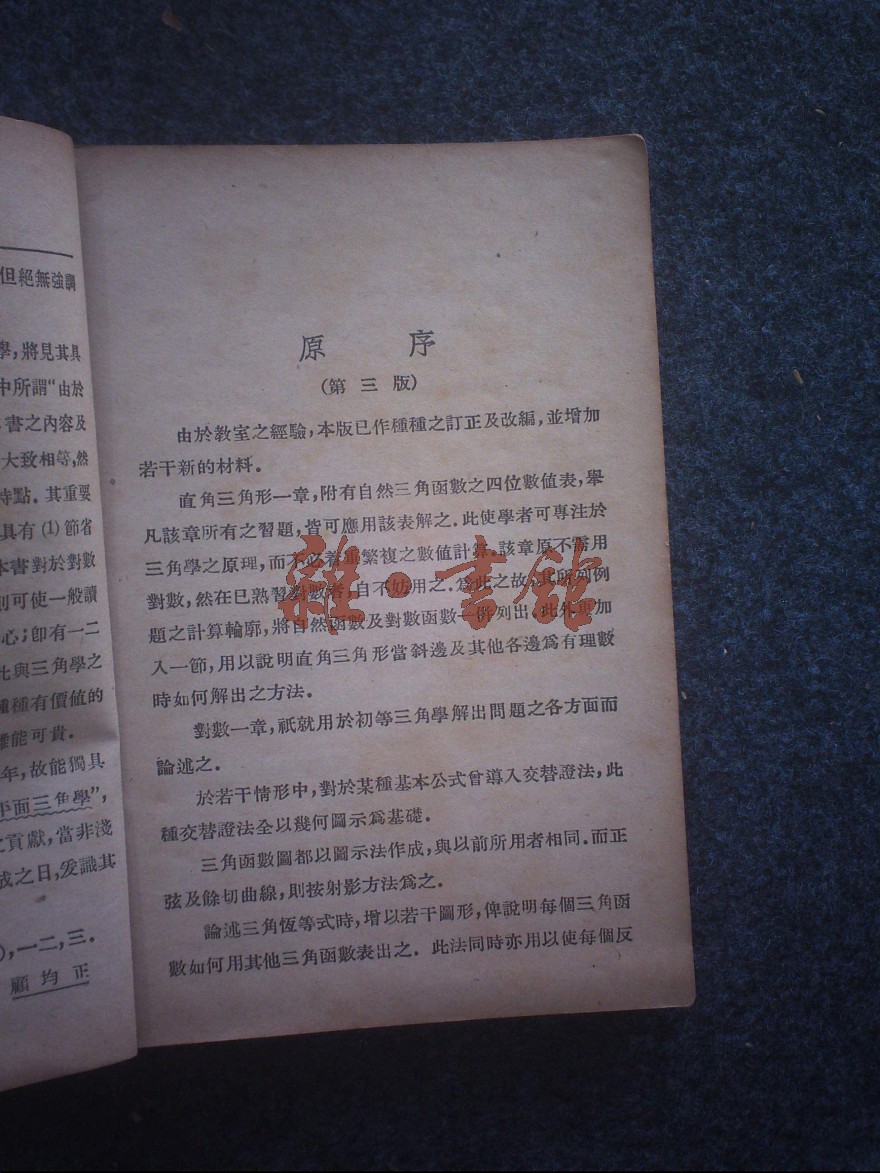 但絕無強調
學,將見其具
中所謂“由於
書之內容及
大致相等,然
特點．其重要
具有 (1) 節省
本書對於對數
則可使一般讀
心;卽有一二
此與三角學之
種種有價値的
難能可貴．
年,故能獨具
平面三角學”,
之貢獻,當非淺
成之日,爰識其
),一二,三．
顧均正
原 序
(第三版)
由於教室之經驗,本版已作種種之訂正及改編,並增加
若干新的材料．
直角三角形一章,附有自然三角函數之四位數値表,舉
凡該章所有之習題,皆可應用該表解之．此使學者可專注於
三角學之原理,而不必着重繁複之數値計算．該章原不需用
對數,然在已熟習對數者,自不妨用之．爲此之故,其所列例
題之計算輪廓,將自然函數及對數函數一併列出．此外更加
入一節,用以說明直角三角形當斜邊及其他各邊爲有理數
時如何解出之方法．
對數一章,祇就用於初等三角學解出問題之各方面而
論述之．
於若干情形中,對於某種基本公式曾導入交替證法,此
種交替證法全以幾何圖示爲基礎．
三角函數圖都以圖示法作成,與以前所用者相同．而正
弦及餘切曲線,則按射影方法爲之．
論述三角恆等式時,增以若干圖形,俾說明每個三角函
數如何用其他三角函數表出之．此法同時亦用以使每個反
雜·書館